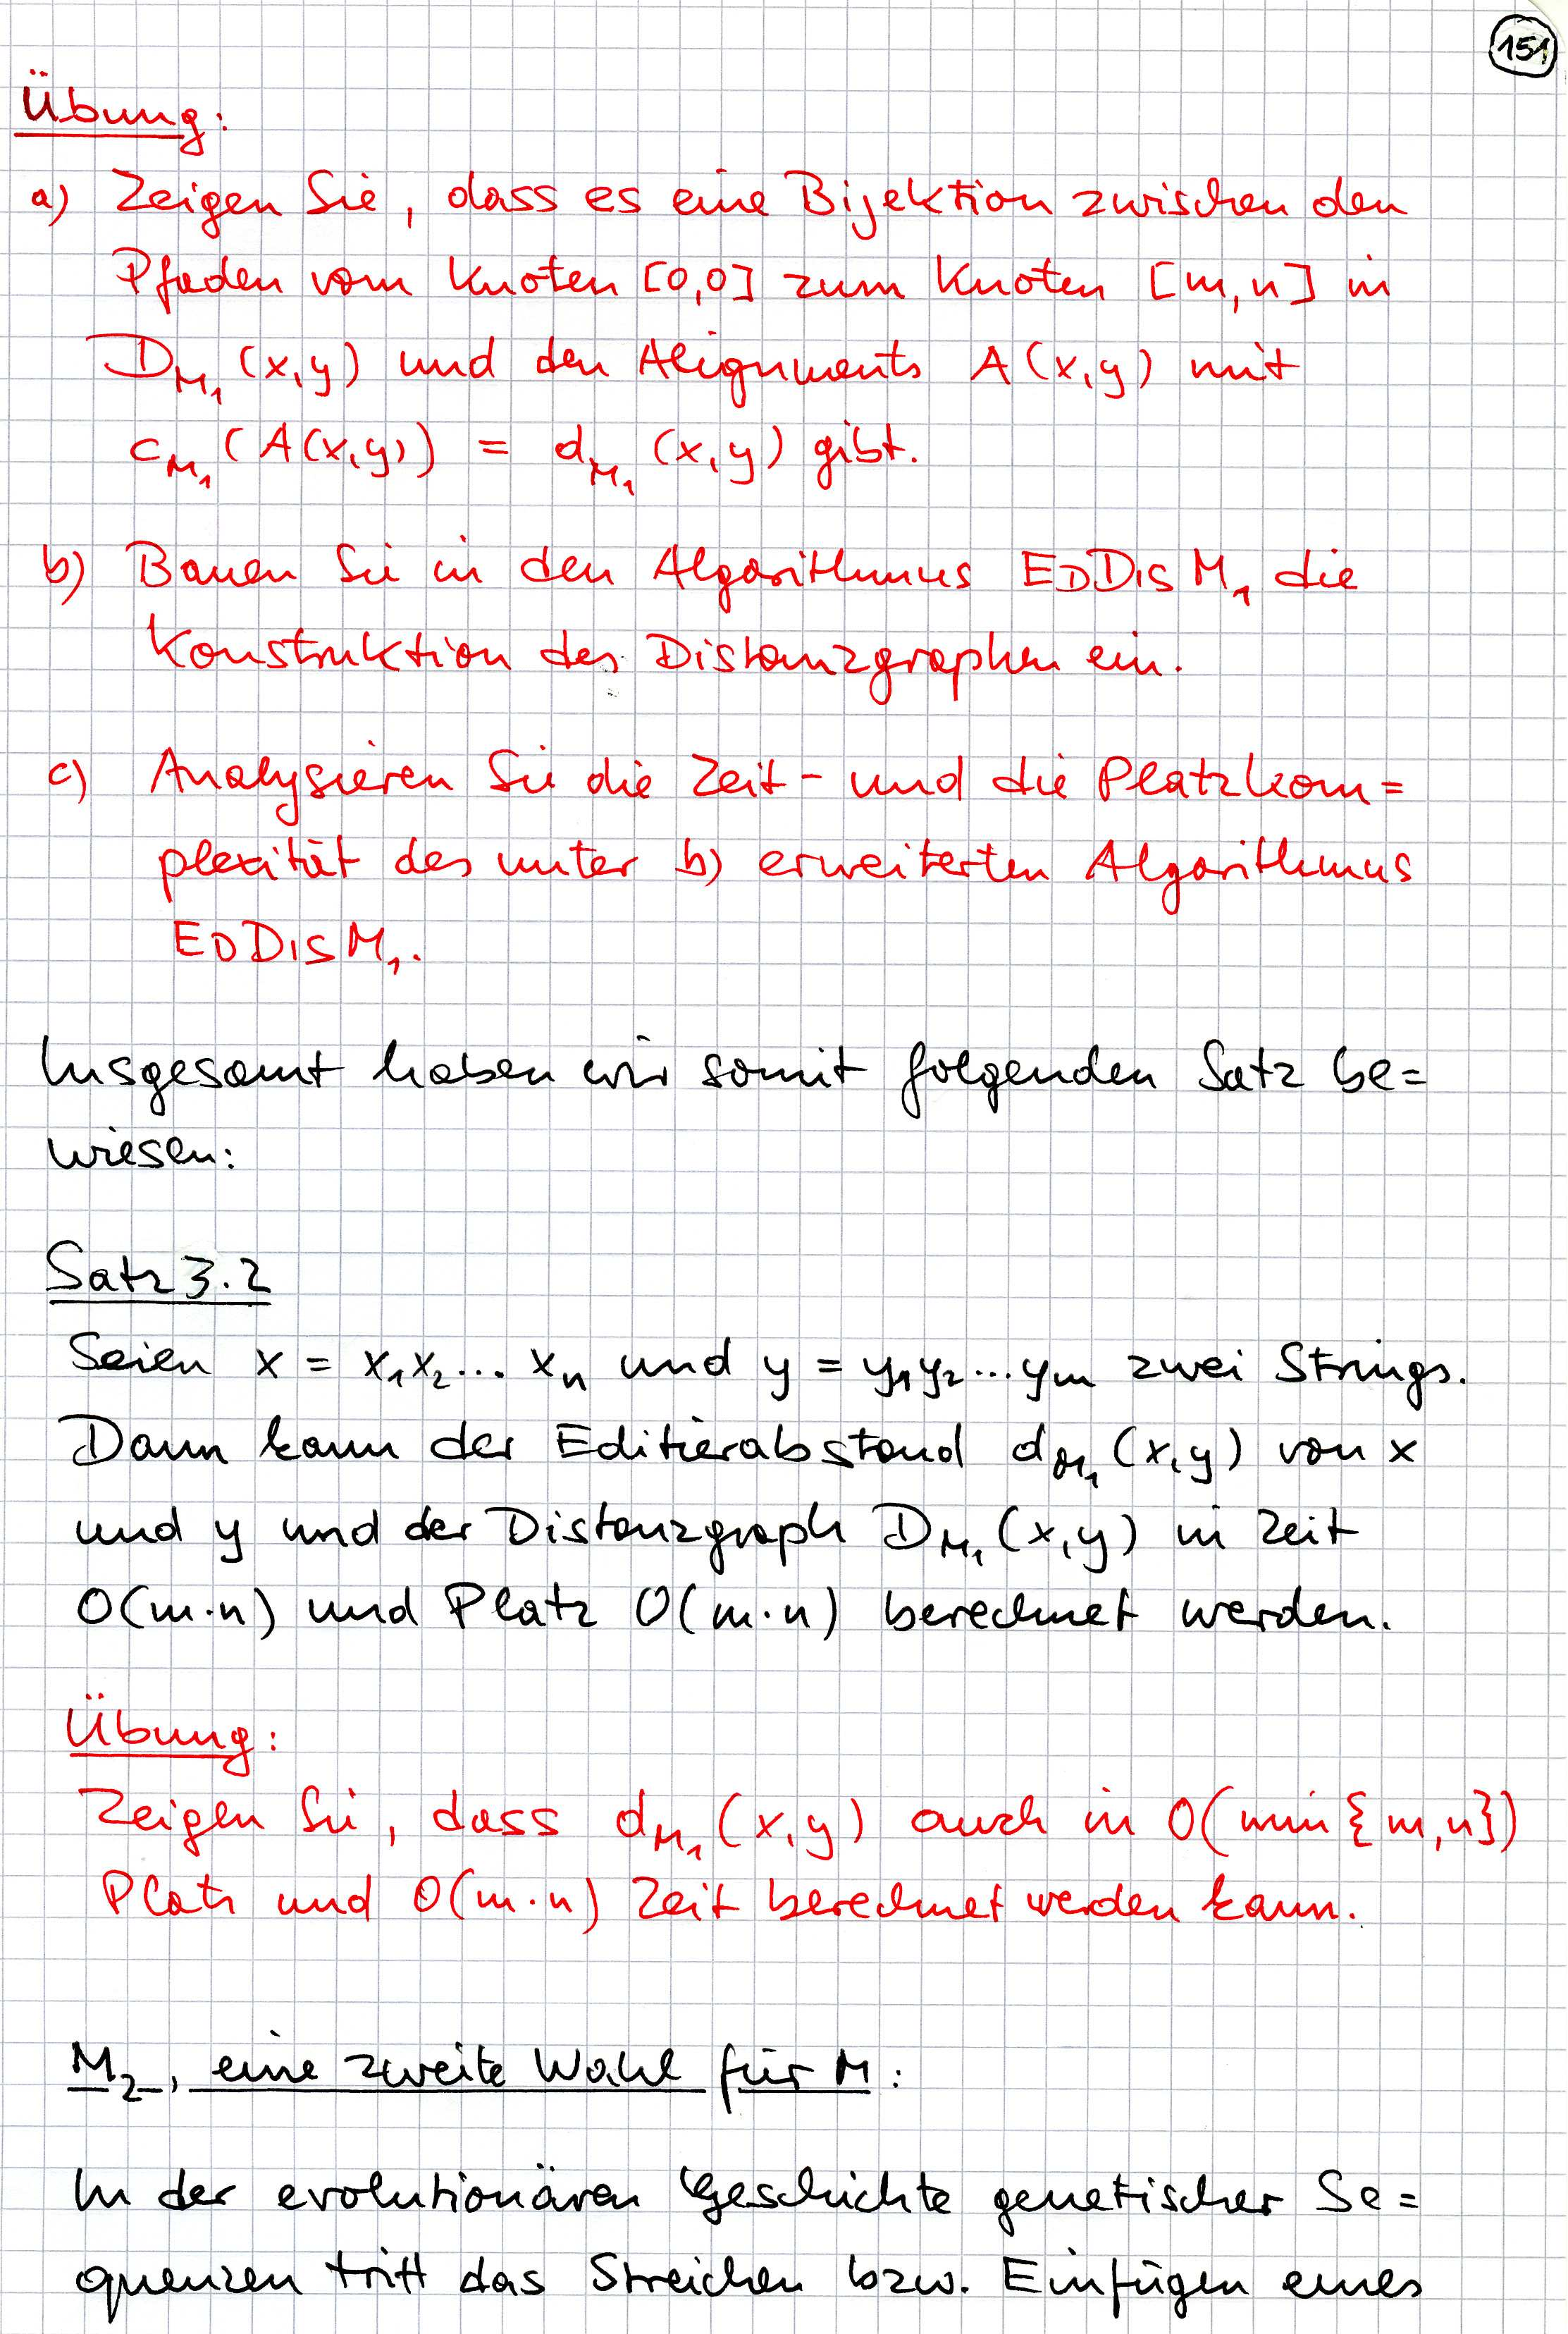 151
Übung:
a) Zeigen Sie, dass es eine Bijektion zwischen den
Pfaden vom Knoten [0,0] zum Knoten [m,n] in
D_{M_1}(x,y) und den Alignments A(x,y) mit
c_{M_1}(A(x,y)) = d_{M_1}(x,y) gibt.
b) Bauen Sie in den Algorithmus EDDISM_1 die
Konstruktion des Distanzgraphen ein.
c) Analysieren Sie die Zeit- und die Platzkom=
plexität des unter b) erweiterten Algorithmus
EDDISM_1.
Insgesamt haben wir somit folgenden Satz be=
wiesen:
Satz 3.2
Seien x = x_1x_2... x_n und y = y_1y_2...y_m zwei Strings.
Dann kann der Editierabstand d_{M_1}(x,y) von x
und y und der Distanzgraph D_{M_1}(x,y) in Zeit
O(m·n) und Platz O(m·n) berechnet werden.
Übung:
Zeigen Sie, dass d_{M_1}(x,y) auch in O(min{m,n})
Platz und O(m·n) Zeit berechnet werden kann.
M_2, eine zweite Wahl für M:
In der evolutionären Geschichte genetischer Se=
quenzen tritt das Streichen bzw. Einfügen eines